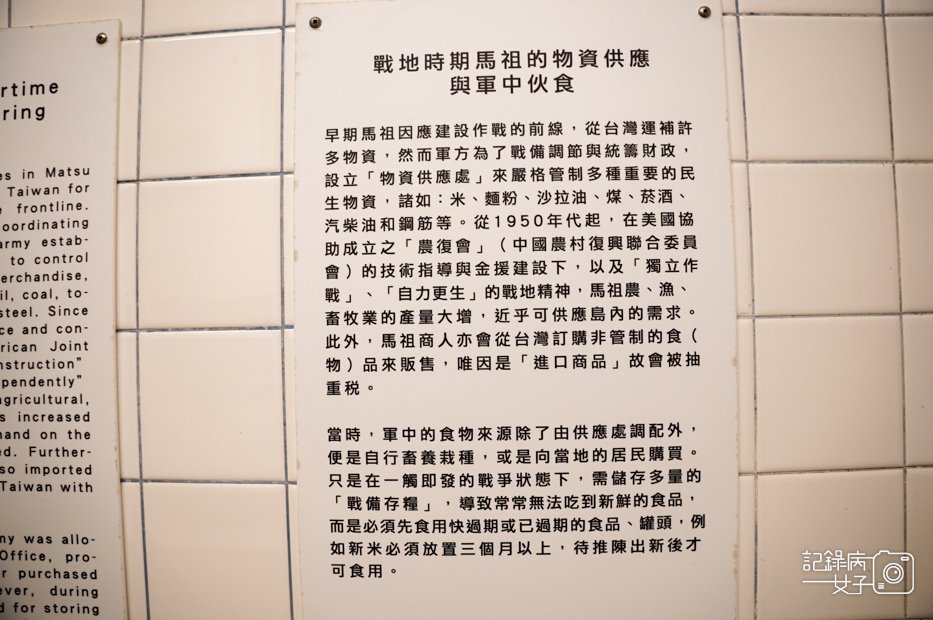 rtime
ring
es in Matsu
Taiwan for
e frontline.
oordinating
army estab-
to control
erchandise,
il, coal, to-
steel. Since
ce and con-
rican Joint
nstruction"
pendently"
agricultural,
s increased
mand on the
ed. Further-
so imported
Taiwan with
my was allo-
Office, pro-
r purchased
ever, during
d for storing
戰地時期馬祖的物資供應
與軍中伙食
早期馬祖因應建設作戰的前線，從台灣運補許
多物資，然而軍方為了戰備調節與統籌財政，
設立「物資供應處」來嚴格管制多種重要的民
生物資，諸如：米、麵粉、沙拉油、煤、菸酒、
汽柴油和鋼筋等。從1950年代起，在美國協
助成立之「農復會」（中國農村復興聯合委員
會）的技術指導與金援建設下，以及「獨立作
戰」、「自力更生」的戰地精神，馬祖農、漁、
畜牧業的產量大增，近乎可供應島內的需求。
此外，馬祖商人亦會從台灣訂購非管制的食（
物）品來販售，唯因是「進口商品」故會被抽
重稅。
當時，軍中的食物來源除了由供應處調配外，
便是自行畜養栽種，或是向當地的居民購買。
只是在一觸即發的戰爭狀態下，需儲存多量的
「戰備存糧」，導致常常無法吃到新鮮的食品，
而是必須先食用快過期或已過期的食品、罐頭，例
如新米必須放置三個月以上，待推陳出新後才
可食用。
記錄病
女子